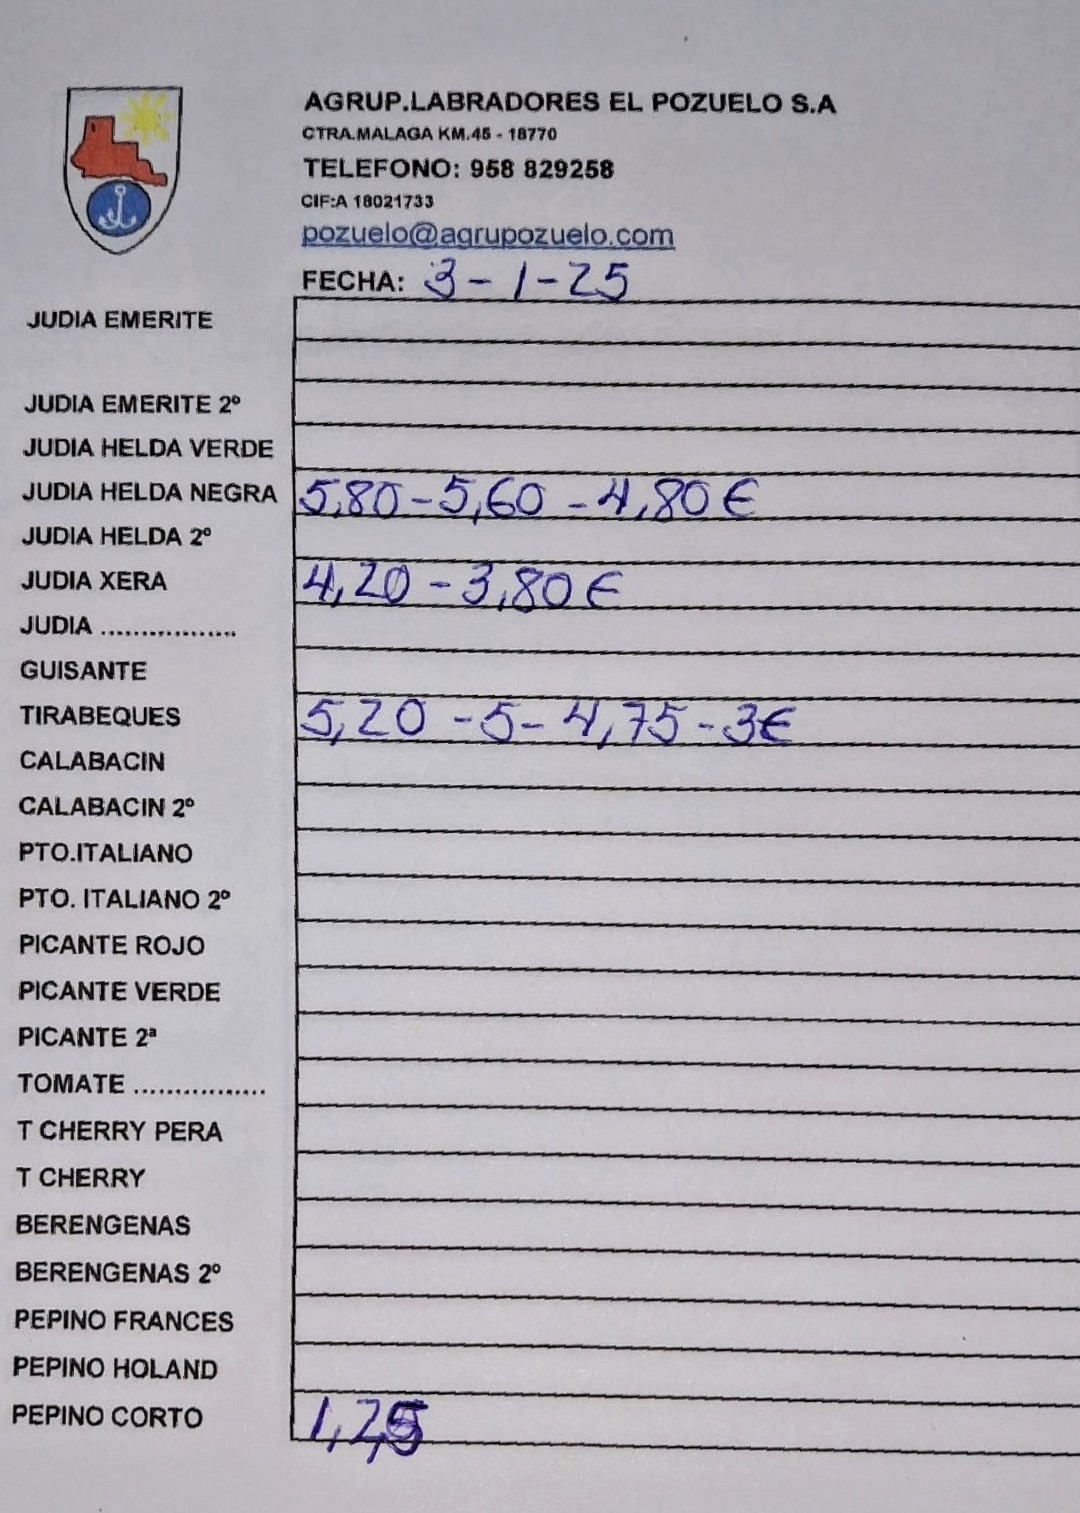 AGRUP.LABRADORES EL POZUELO S.A
CTRA.MALAGA KM.45 - 18770
TELEFONO: 958 829258
CIF:A 18021733
pozuelo@agrupozuelo.com
FECHA: 3-1-25
JUDIA EMERITE
JUDIA EMERITE 2º
JUDIA HELDA VERDE
JUDIA HELDA NEGRA 5,80-5,60-4,80€
JUDIA HELDA 2º
JUDIA XERA 4,20-3,80€
JUDIA .................
GUISANTE
TIRABEQUES 5,20-5-4,75-3€
CALABACIN
CALABACIN 2º
PTO.ITALIANO
PTO. ITALIANO 2º
PICANTE ROJO
PICANTE VERDE
PICANTE 2ª
TOMATE ................
T CHERRY PERA
T CHERRY
BERENGENAS
BERENGENAS 2º
PEPINO FRANCES
PEPINO HOLAND
PEPINO CORTO